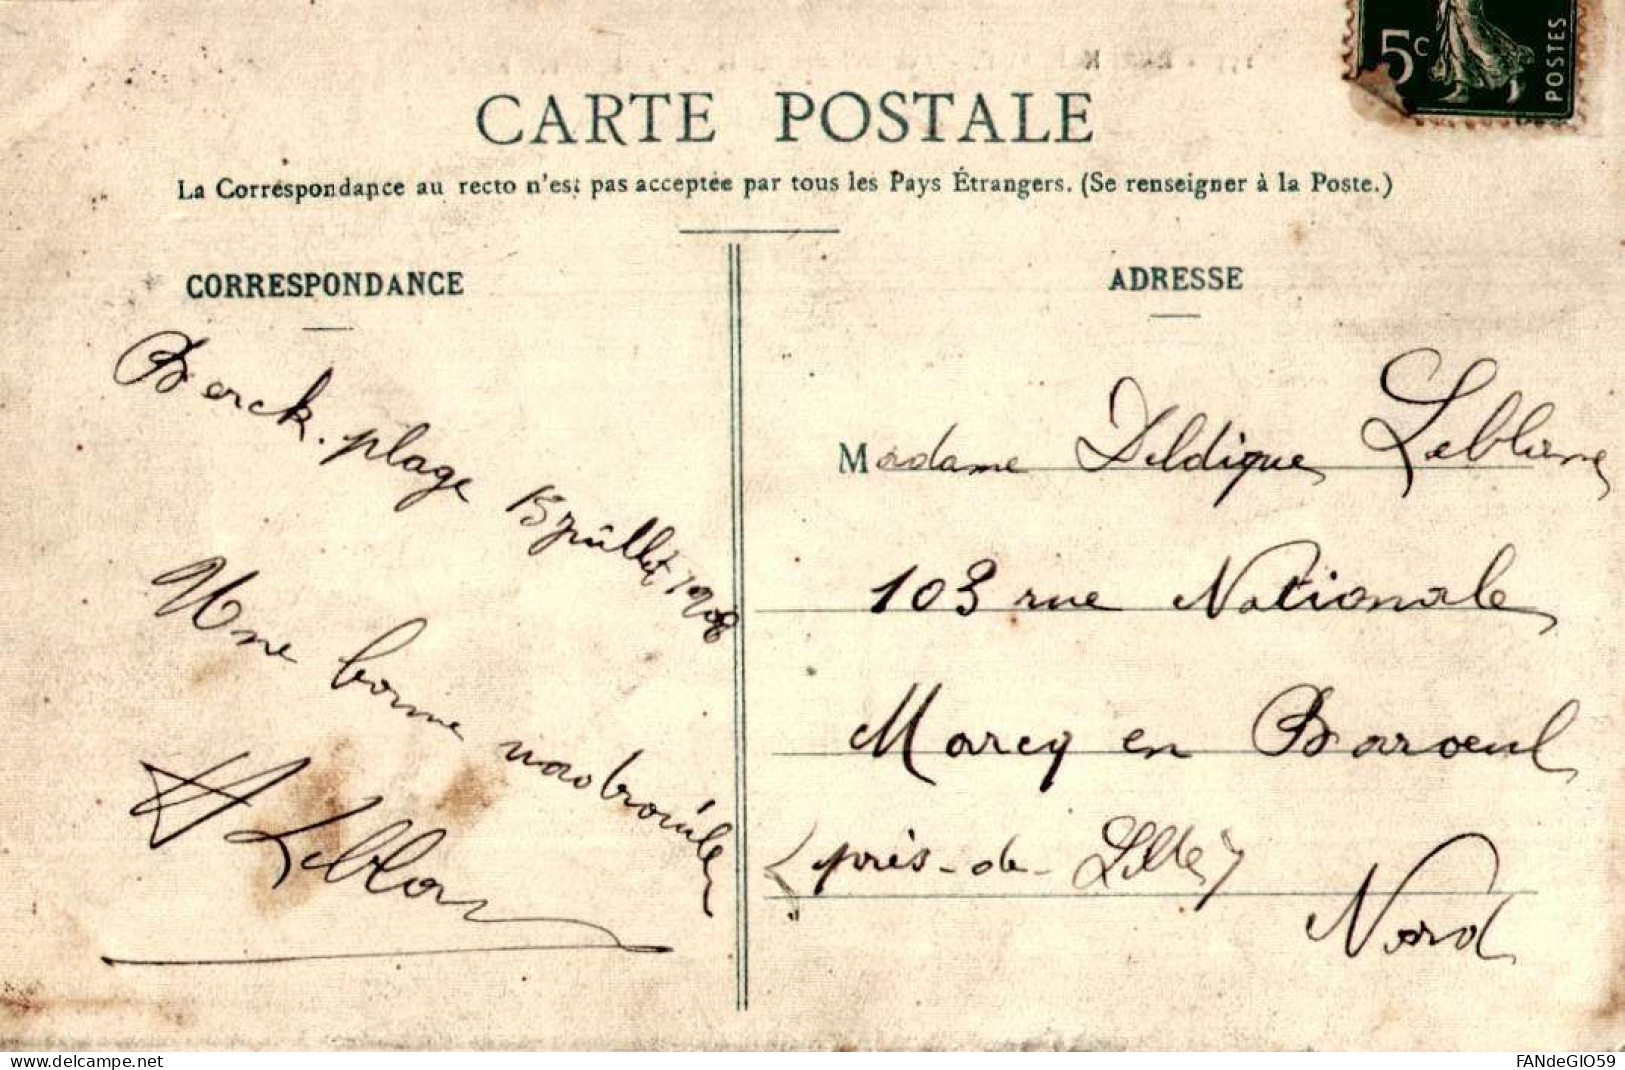 5c
POSTES
CARTE POSTALE
La Correspondance au recto n'est pas acceptée par tous les Pays Étrangers. (Se renseigner à la Poste.)
CORRESPONDANCE
Berck. plage 15 juillet 1908
Une bonne
Leblanc
ADRESSE
Madame Leblanc
103 rue Nationale
Marcq en Baroeul
(près-de-Lille)
Nord
www.delcampe.net
FANdeGIO59